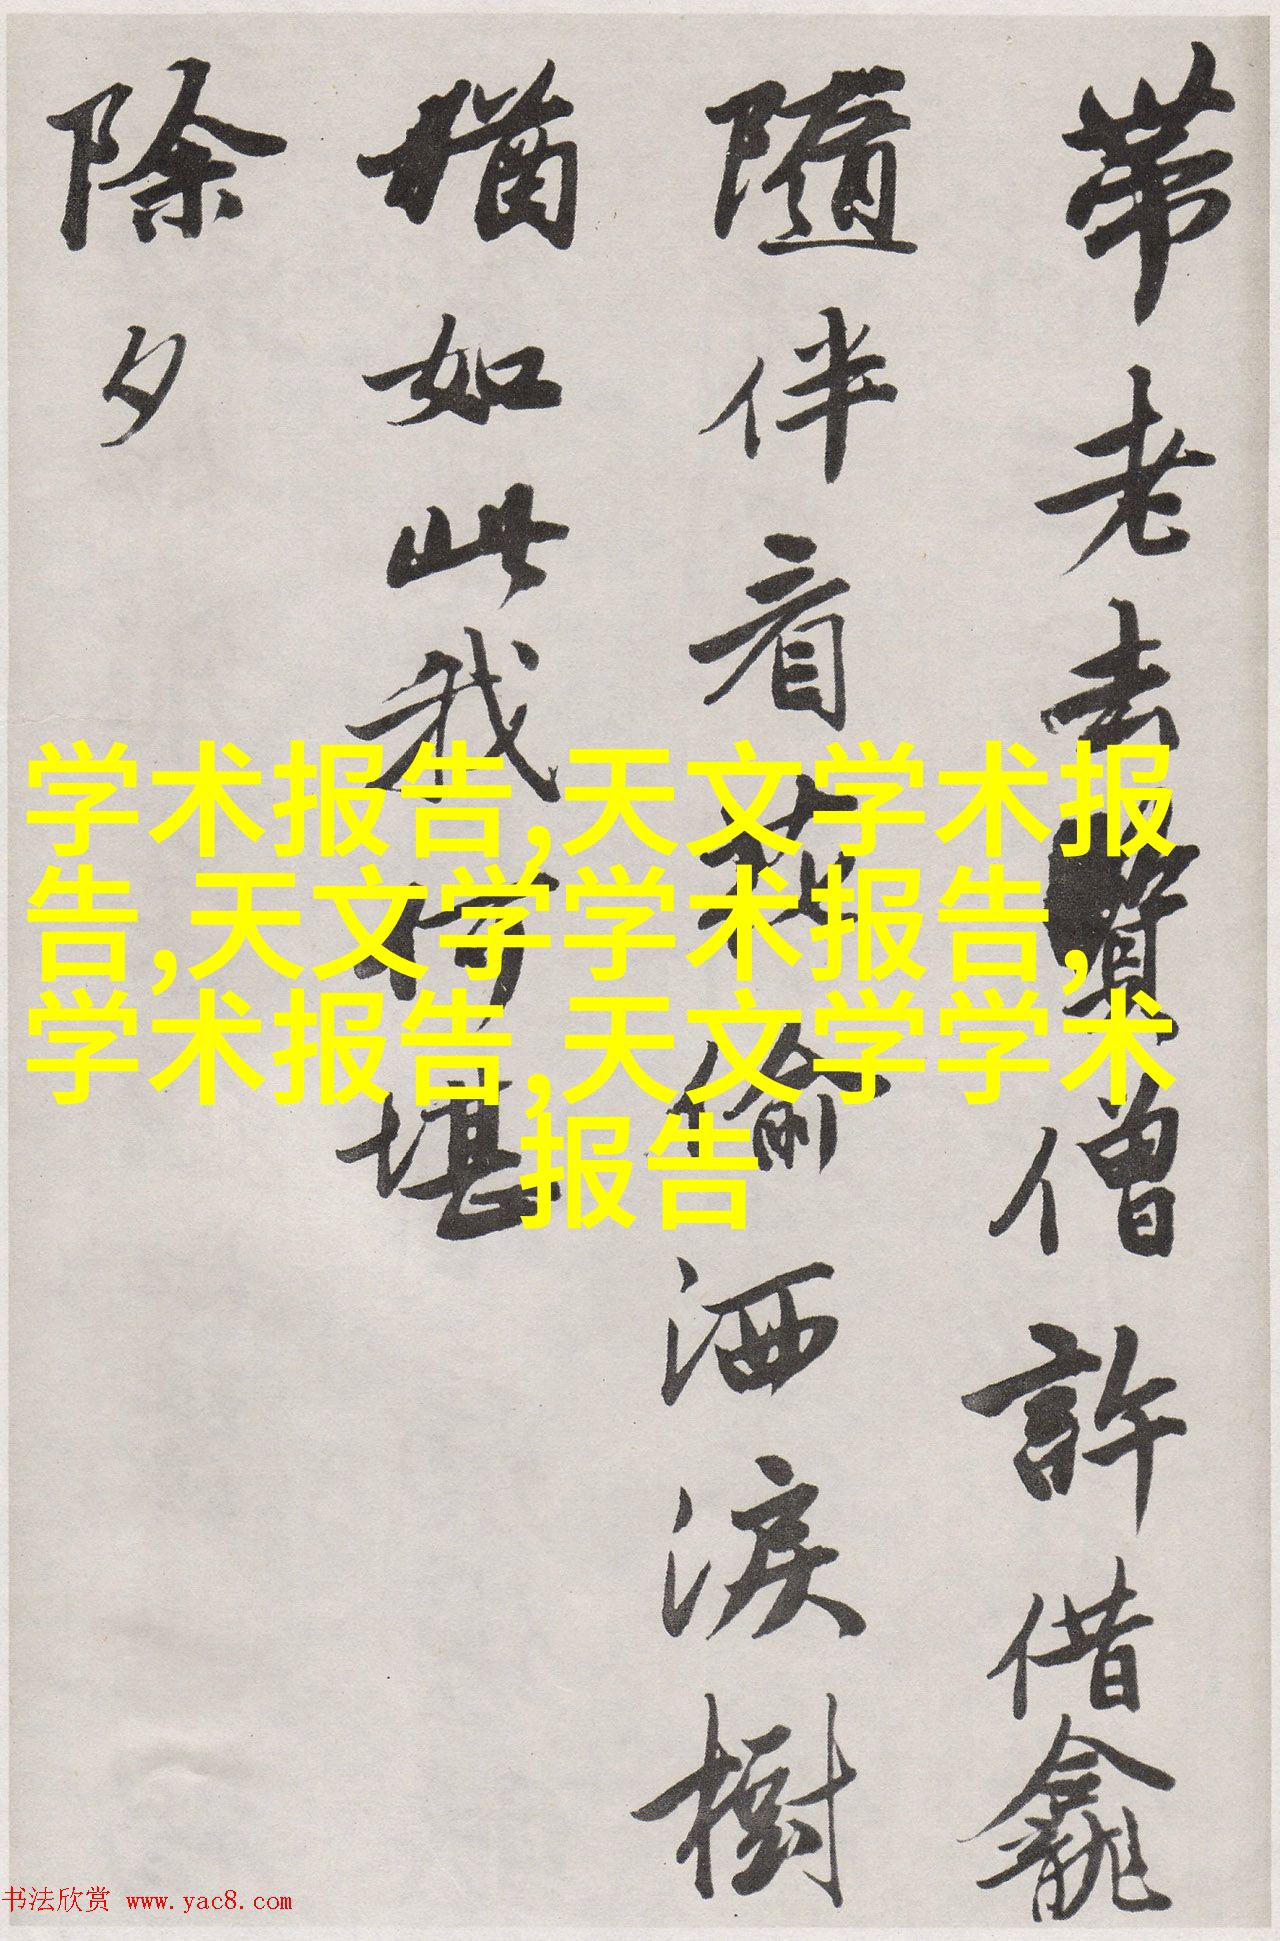 帶老去僧許借龕
隨伴看偷洒淚樹
猶如此我何堪
除夕
学术报告,天文学术报
告,天文学学术报告,
学术报告,天文学学术
报告
书法欣赏 www.yac8.com